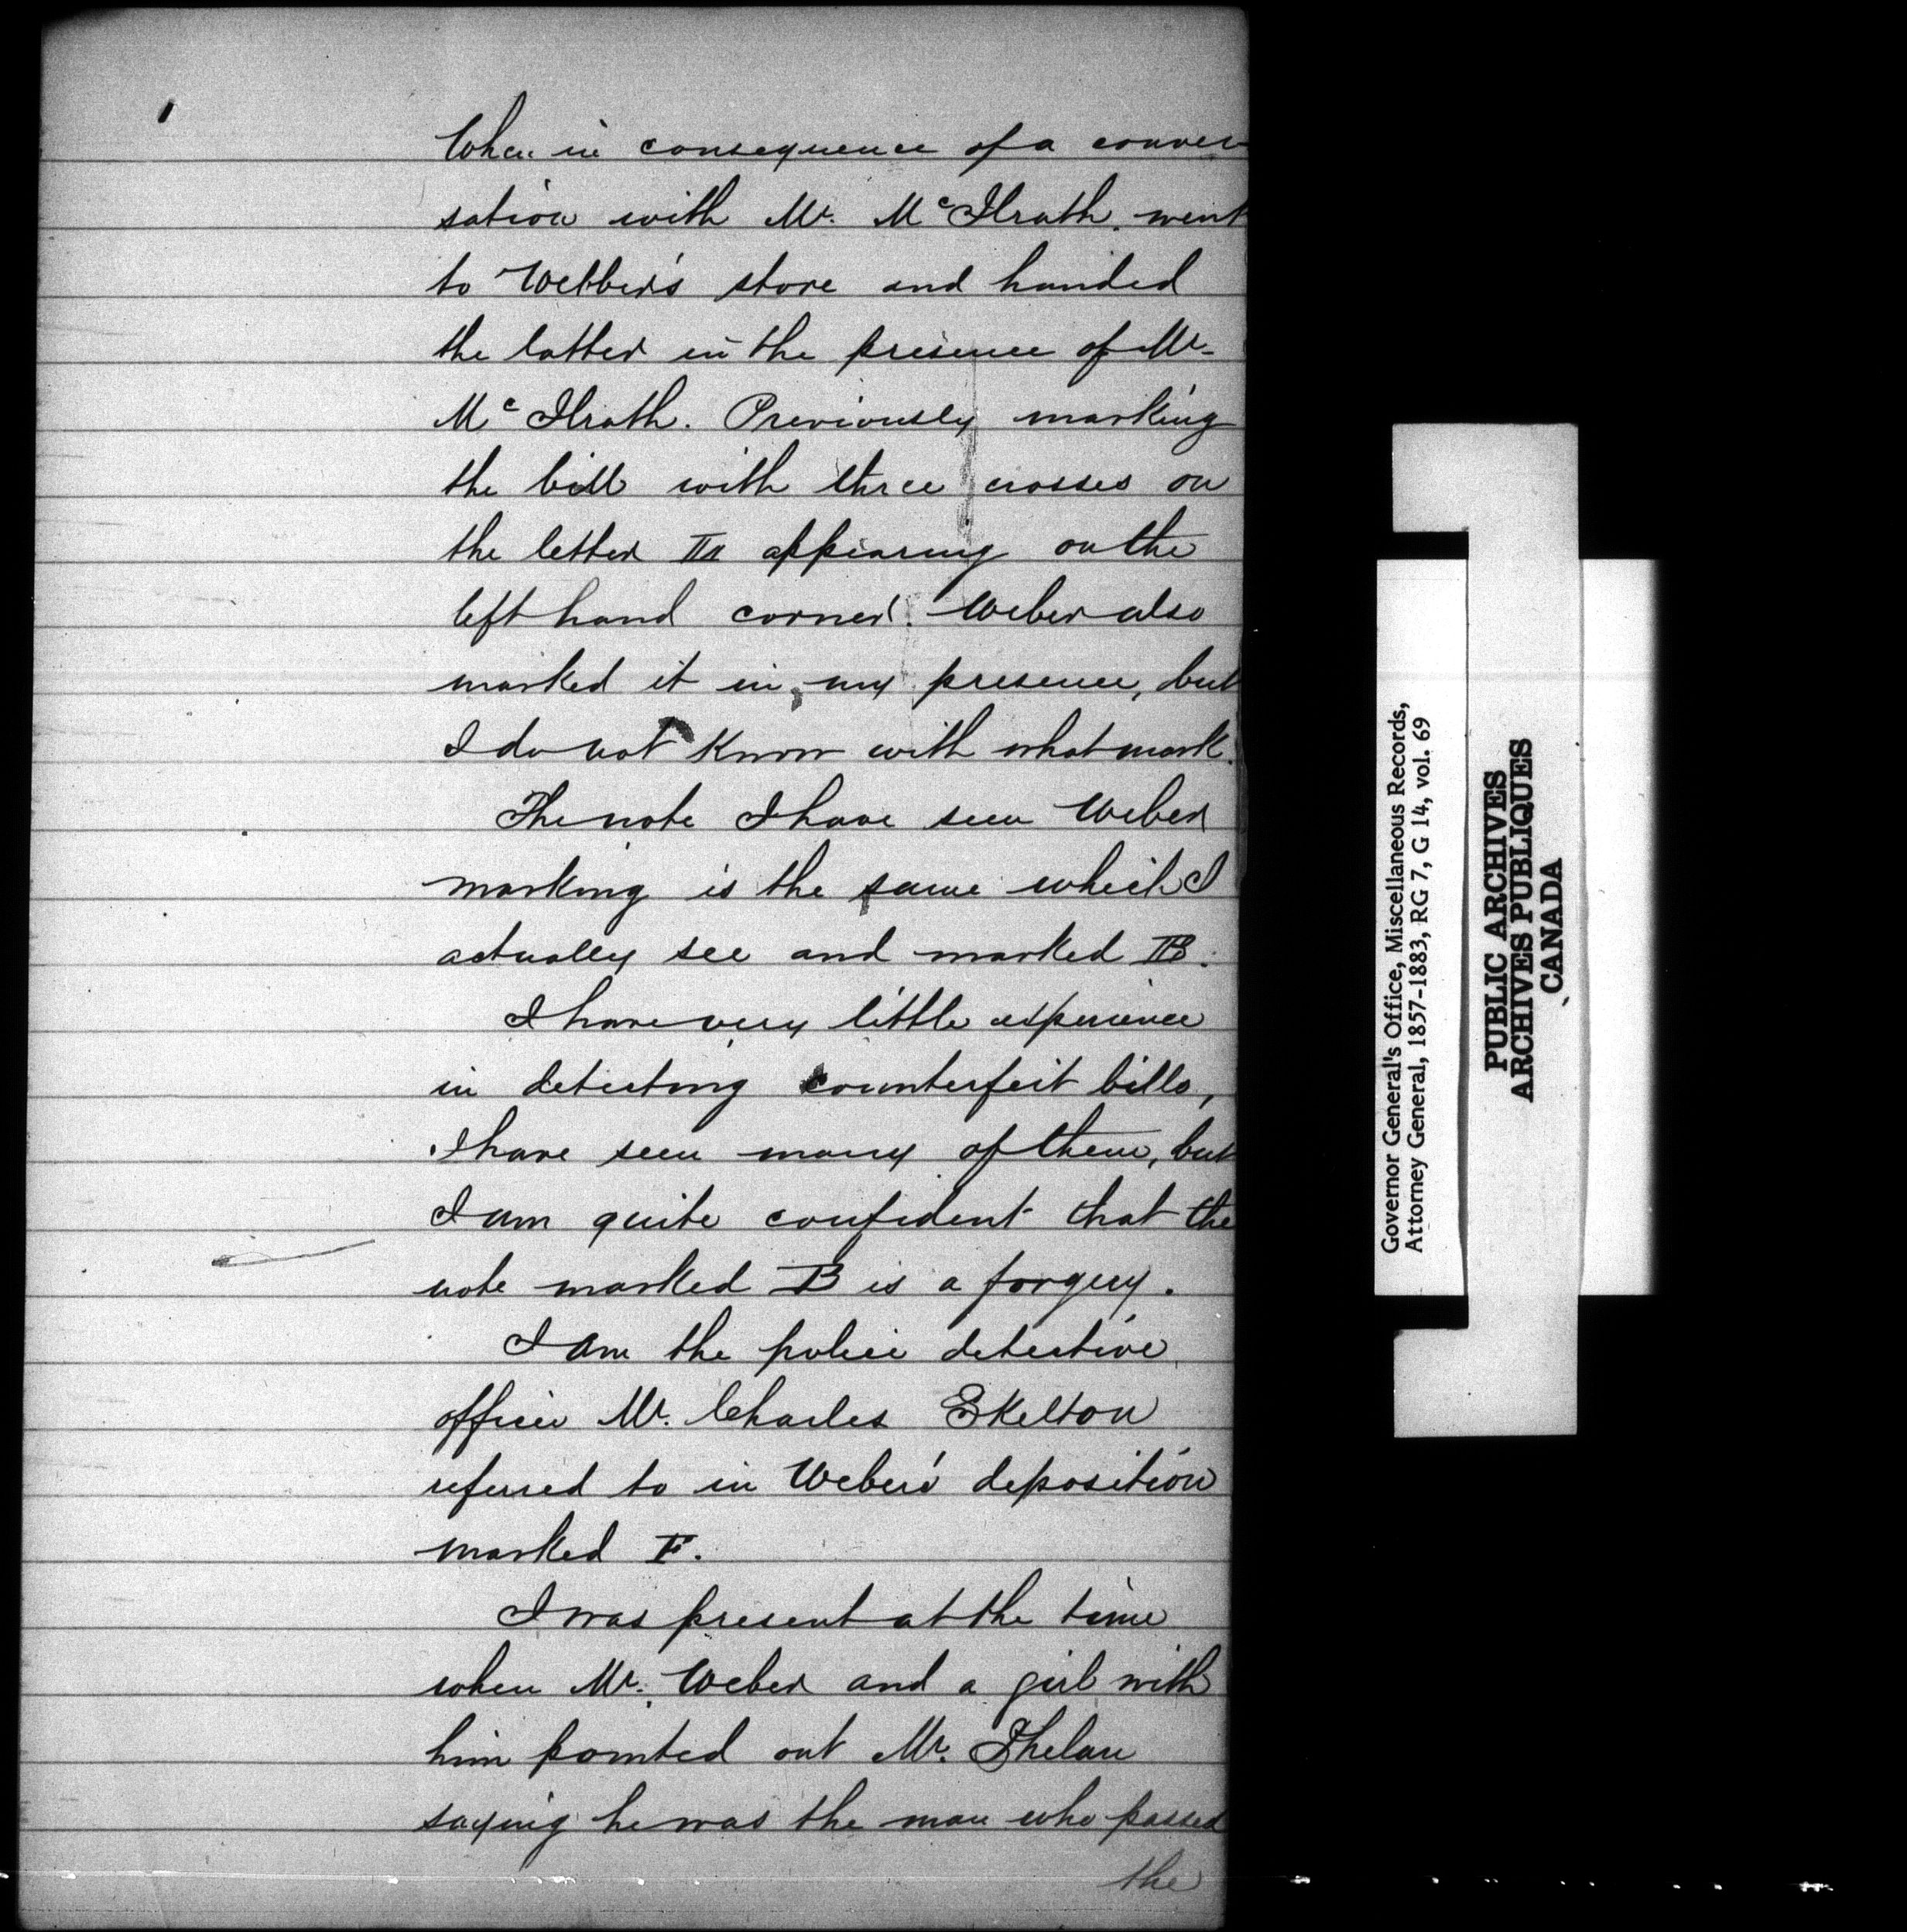 When in consequence of a conver-
sation with Mr. McIlrath. went
to Webber's store and handed
the latter in the presence of Mr.
McIlrath. Previously marking
the bill with three crosses on
the letter appearing on the
left hand corner. Weber also
marked it in my presence, but
I do not know with what mark.
The note I have seen Weber
marking is the same which I
actually see and marked B.
I have very little experience
in detecting counterfeit bills,
I have seen many of them, but
I am quite confident that the
note marked B is a forgery.
I am the police detective
officer Mr. Charles Skelton
referred to in Weber's deposition
marked F.
I was present at the time
when Mr. Weber and a girl with
him pointed out Mr. Thelan
saying he was the man who passed
the
Governor General's Office, Miscellaneous Records,
Attorney General, 1857-1883, RG 7, G 14, vol. 69
PUBLIC ARCHIVES
ARCHIVES PUBLIQUES
CANADA